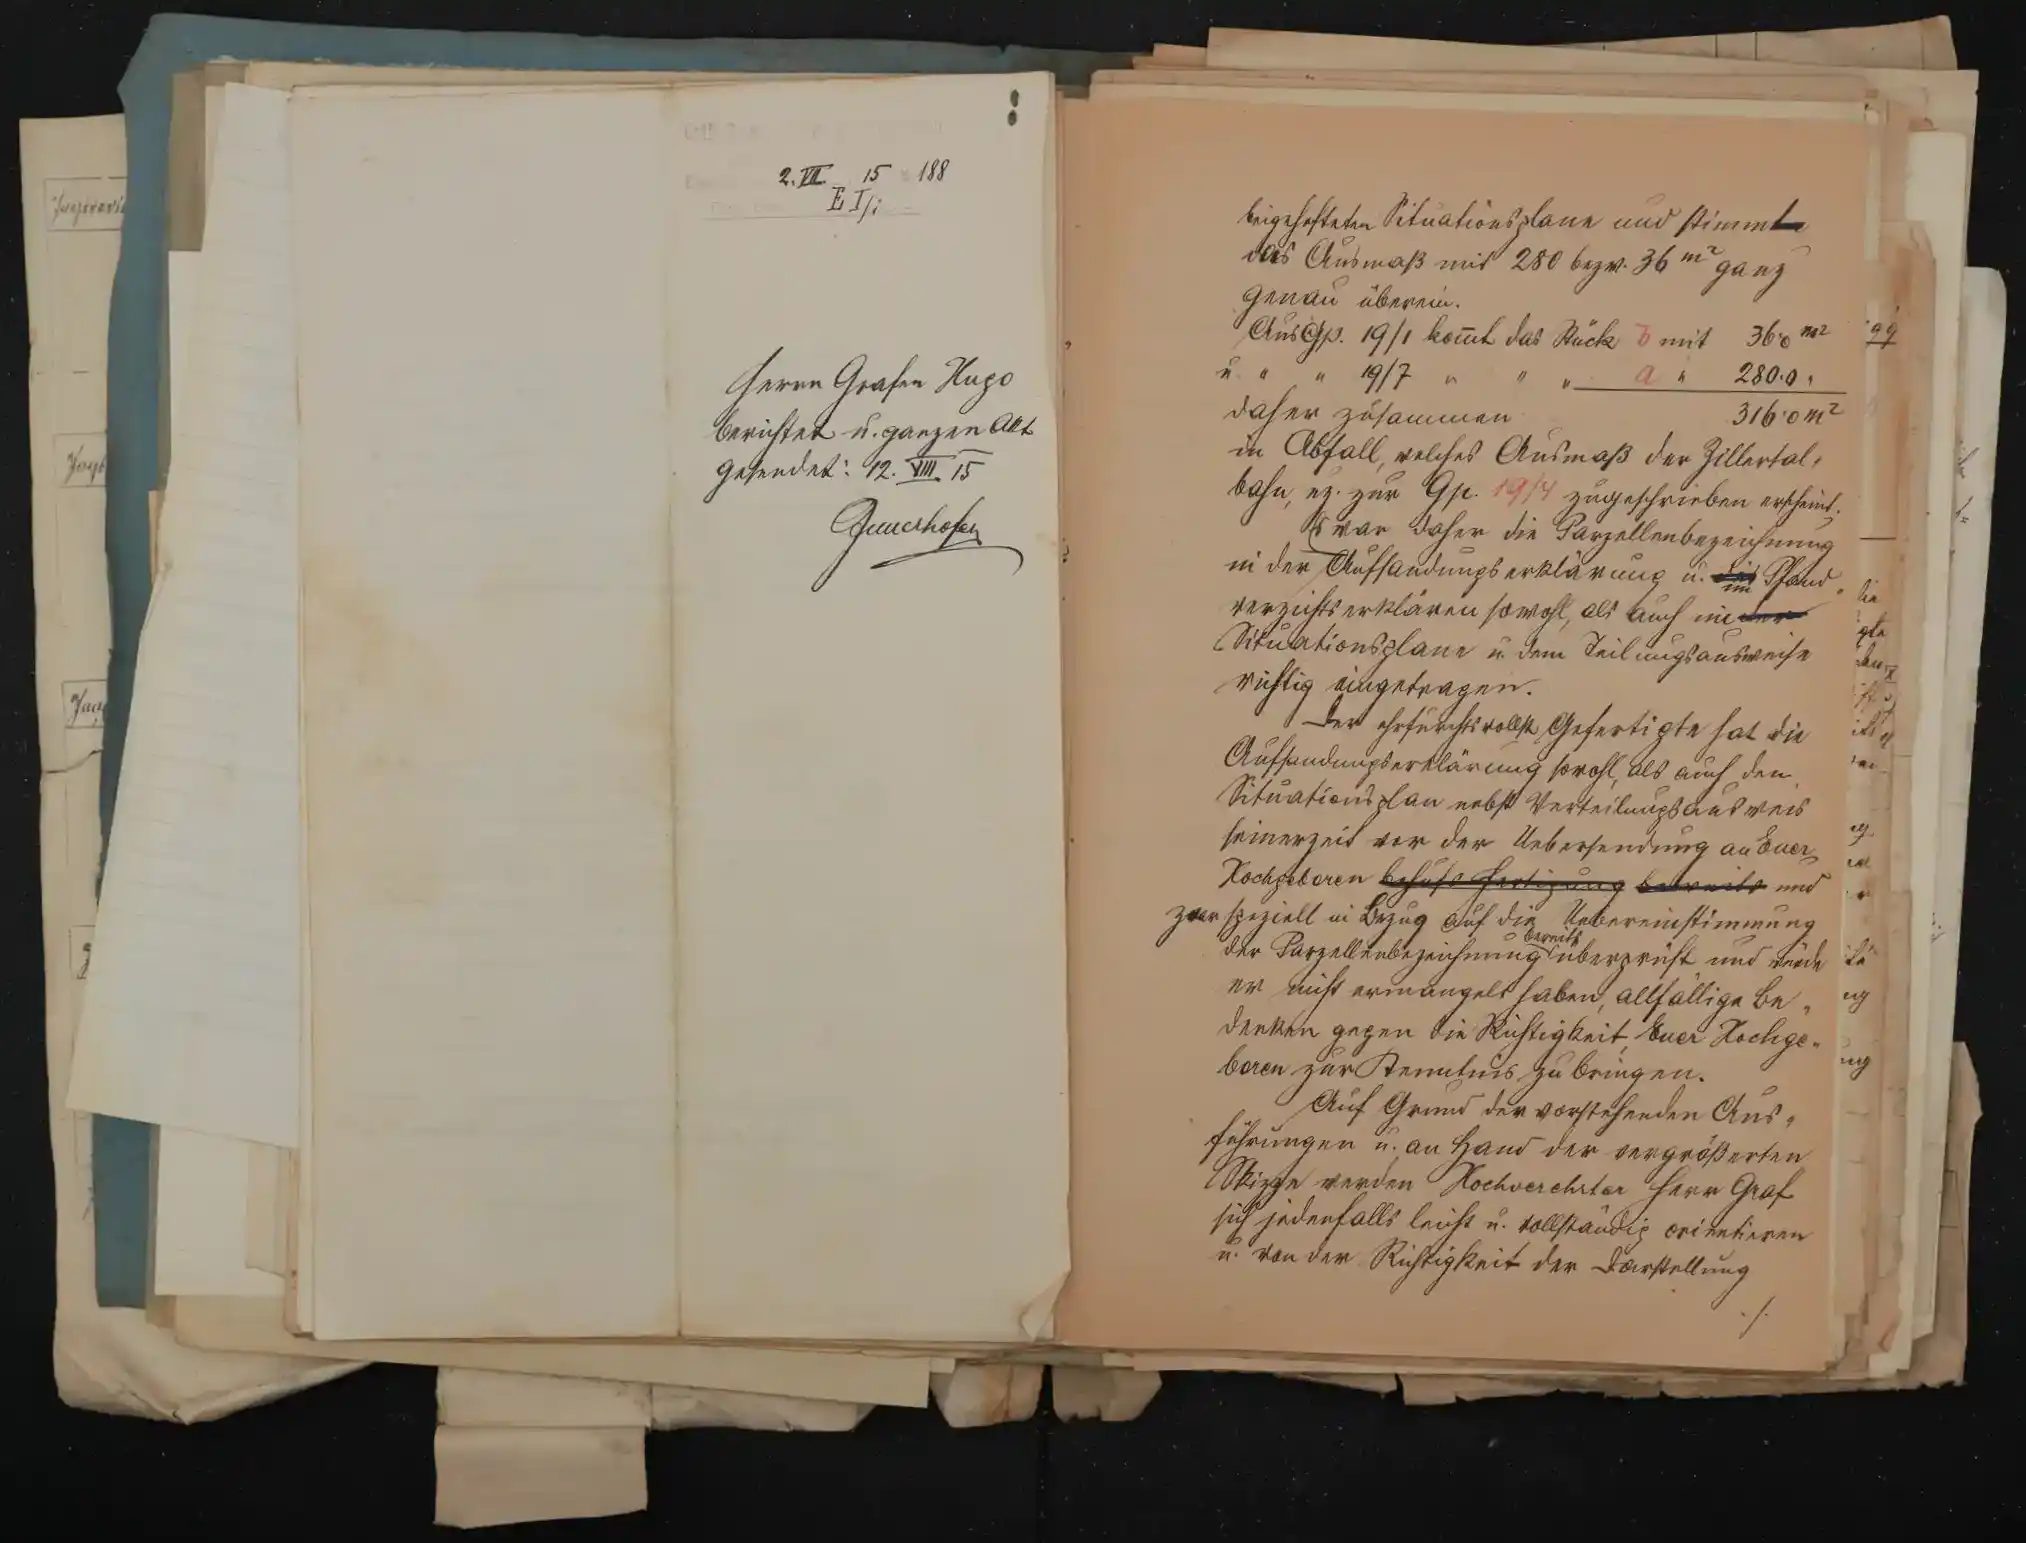 2. VII. 15 188
E I/i
Herrn Grafen Hugo
berichtet u. ganzen Akt
gesendet: 12. VIII. 15
beigehefteten Situationsplane und stimmt
das Ausmaß mit 280 bezw. 36 m² ganz
genau überein.
Aus Gp. 19/1 kom̄t das Stück b mit 36·0 m²
u. " " 19/7 " " " a " 280·0 "
daher zusammen 316·0 m²
in Abfall, welches Ausmaß der Zillertal-
bahn, ez. zur Gp. 19/4 zugeschrieben erscheint.
Es war daher die Parzellenbezeichnung
in der Aufsandungserklärung u. im Pfand-
verzichtserklären sowohl, als auch im
Situationsplane u. dem Teilungsausweise
richtig eingetragen.
Der ehrfurchtsvollst Gefertigte hat die
Aufsandungserklärung sowohl, als auch den
Situationsplan nebst Verteilungsausweis
seinerzeit vor der Uebersendung an Euer
Hochgeboren behufs Fertigung bereits und
zwar speziell in Bezug auf die Uebereinstimmung
der Parzellenbezeichnung bereits überprüft und würde
er nicht ermangelt haben, allfällige Be-
denken gegen die Richtigkeit, Euer Hochge-
boren zur Kenntnis zu bringen.
Auf Grund der vorstehenden Aus-
führungen u. an Hand der vergrößerten
Skizze werden Hochverehrter Herr Graf
sich jedenfalls leicht u. vollständig orientieren
u. von der Richtigkeit der Darstellung
./.